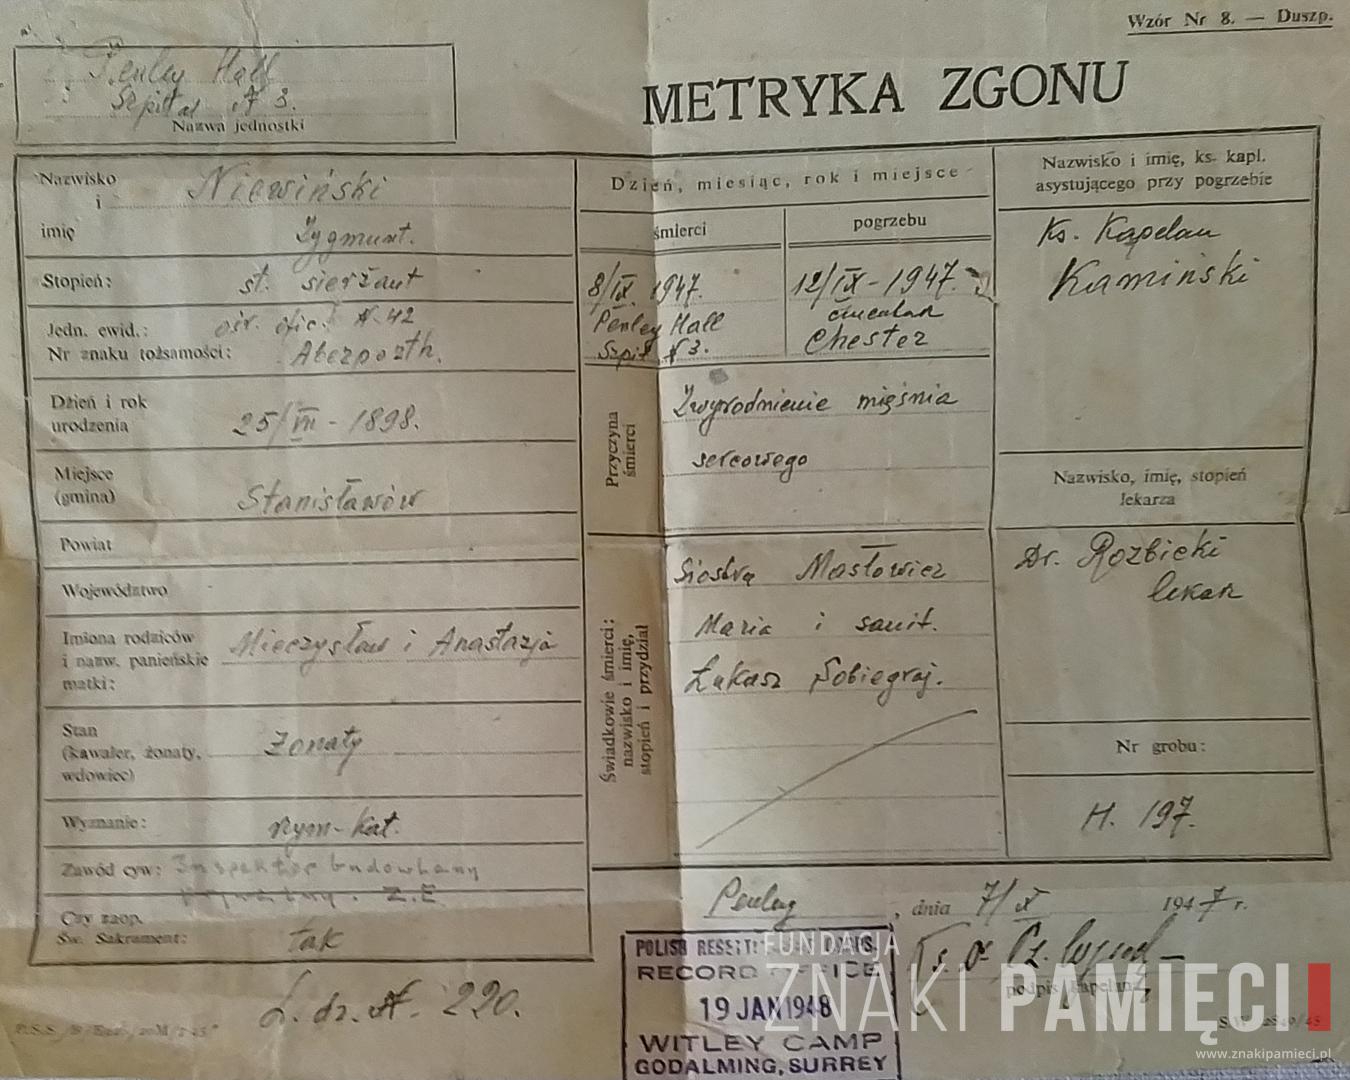 Wzór Nr 8. — Duszp.
Penley Hall
Szpital № 3.
Nazwa jednostki
METRYKA ZGONU
Nazwisko i imię Niewiński
Zygmunt.
Stopień: st. sierżant
Jedn. ewid.: ofic. № 42
Nr znaku tożsamości: Aberporth.
Dzień i rok urodzenia 25/VII - 1898.
Miejsce (gmina) Stanisławów
Powiat
Województwo
Imiona rodziców i nazw. panieńskie matki: Mieczysław i Anastazja
Stan (kawaler, żonaty, wdowiec) Żonaty
Wyznanie: rzym-kat.
Zawód cyw: Inspektor budowlany
Z.E
Czy zaop. Św. Sakrament: tak
L. dz. № 220.
Dzień, miesiąc, rok i miejsce
śmierci
pogrzebu
8/IX. 1947.
Penley Hall
Szpit № 3.
12/IX - 1947.
Chester
Przyczyna śmierci
Zwyrodnienie mięśnia
sercowego
Świadkowie śmierci: nazwisko i imię, stopień i przydział
Siostra Masłowicz
Maria i sanit.
Łukasz Sobiegraj.
Nazwisko i imię, ks. kapl.
asystującego przy pogrzebie
Ks. Kapelan
Kamiński
Nazwisko, imię, stopień
lekarza
Dr. Rozbicki
lekarz
Nr grobu:
H. 197.
Penley, dnia 7/X 1947 r.
podpis Kapelana
POLISH RESETTLEMENT CORPS.
RECORD OFFICE
19 JAN 1948
WITLEY CAMP
GODALMING, SURREY
FUNDACJA
ZNAKI PAMIĘCI
www.znakipamieci.pl